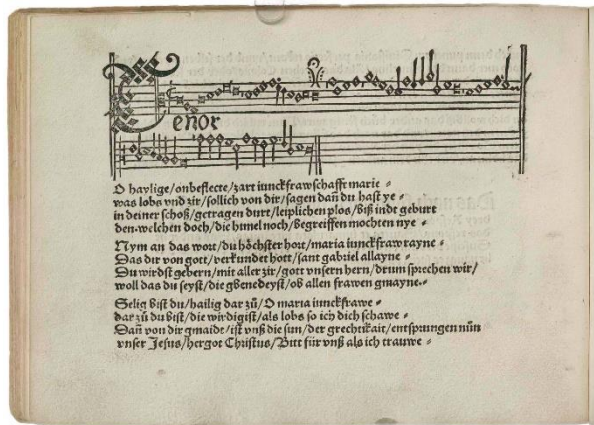 Tenor
O haylige/onbeflecte/zart iunckfrawschafft marie
was lobs vnd zir/sollich von dir/sagen dañ du hast ye
in deiner schoß/getragen durt/leiplichen plos/biß indt geburt
den.welchen doch/die himel noch/begreiffen mochten nye
Nym an das wort/du höchster hort/maria iunckfraw rayne
Das dir von gott/verkundet hott/sant gabriel allayne
Du wirdst gebern/mit aller zir/gott vnsern hern/drum sprechen wir/
woll das du seyst/die gbenedeyst/ob allen frawen gmayne
Selig bist du/hailig dar zů/O maria iunckfrawe
dar zů du bist/die wirdigist/als lobs so ich dich schawe
Dañ von dir gmaide/ist vnß die sun/der grechtikait/entsprungen nůn
vnser Jesus/hergot Christus/Bitt für vnß als ich trauwe